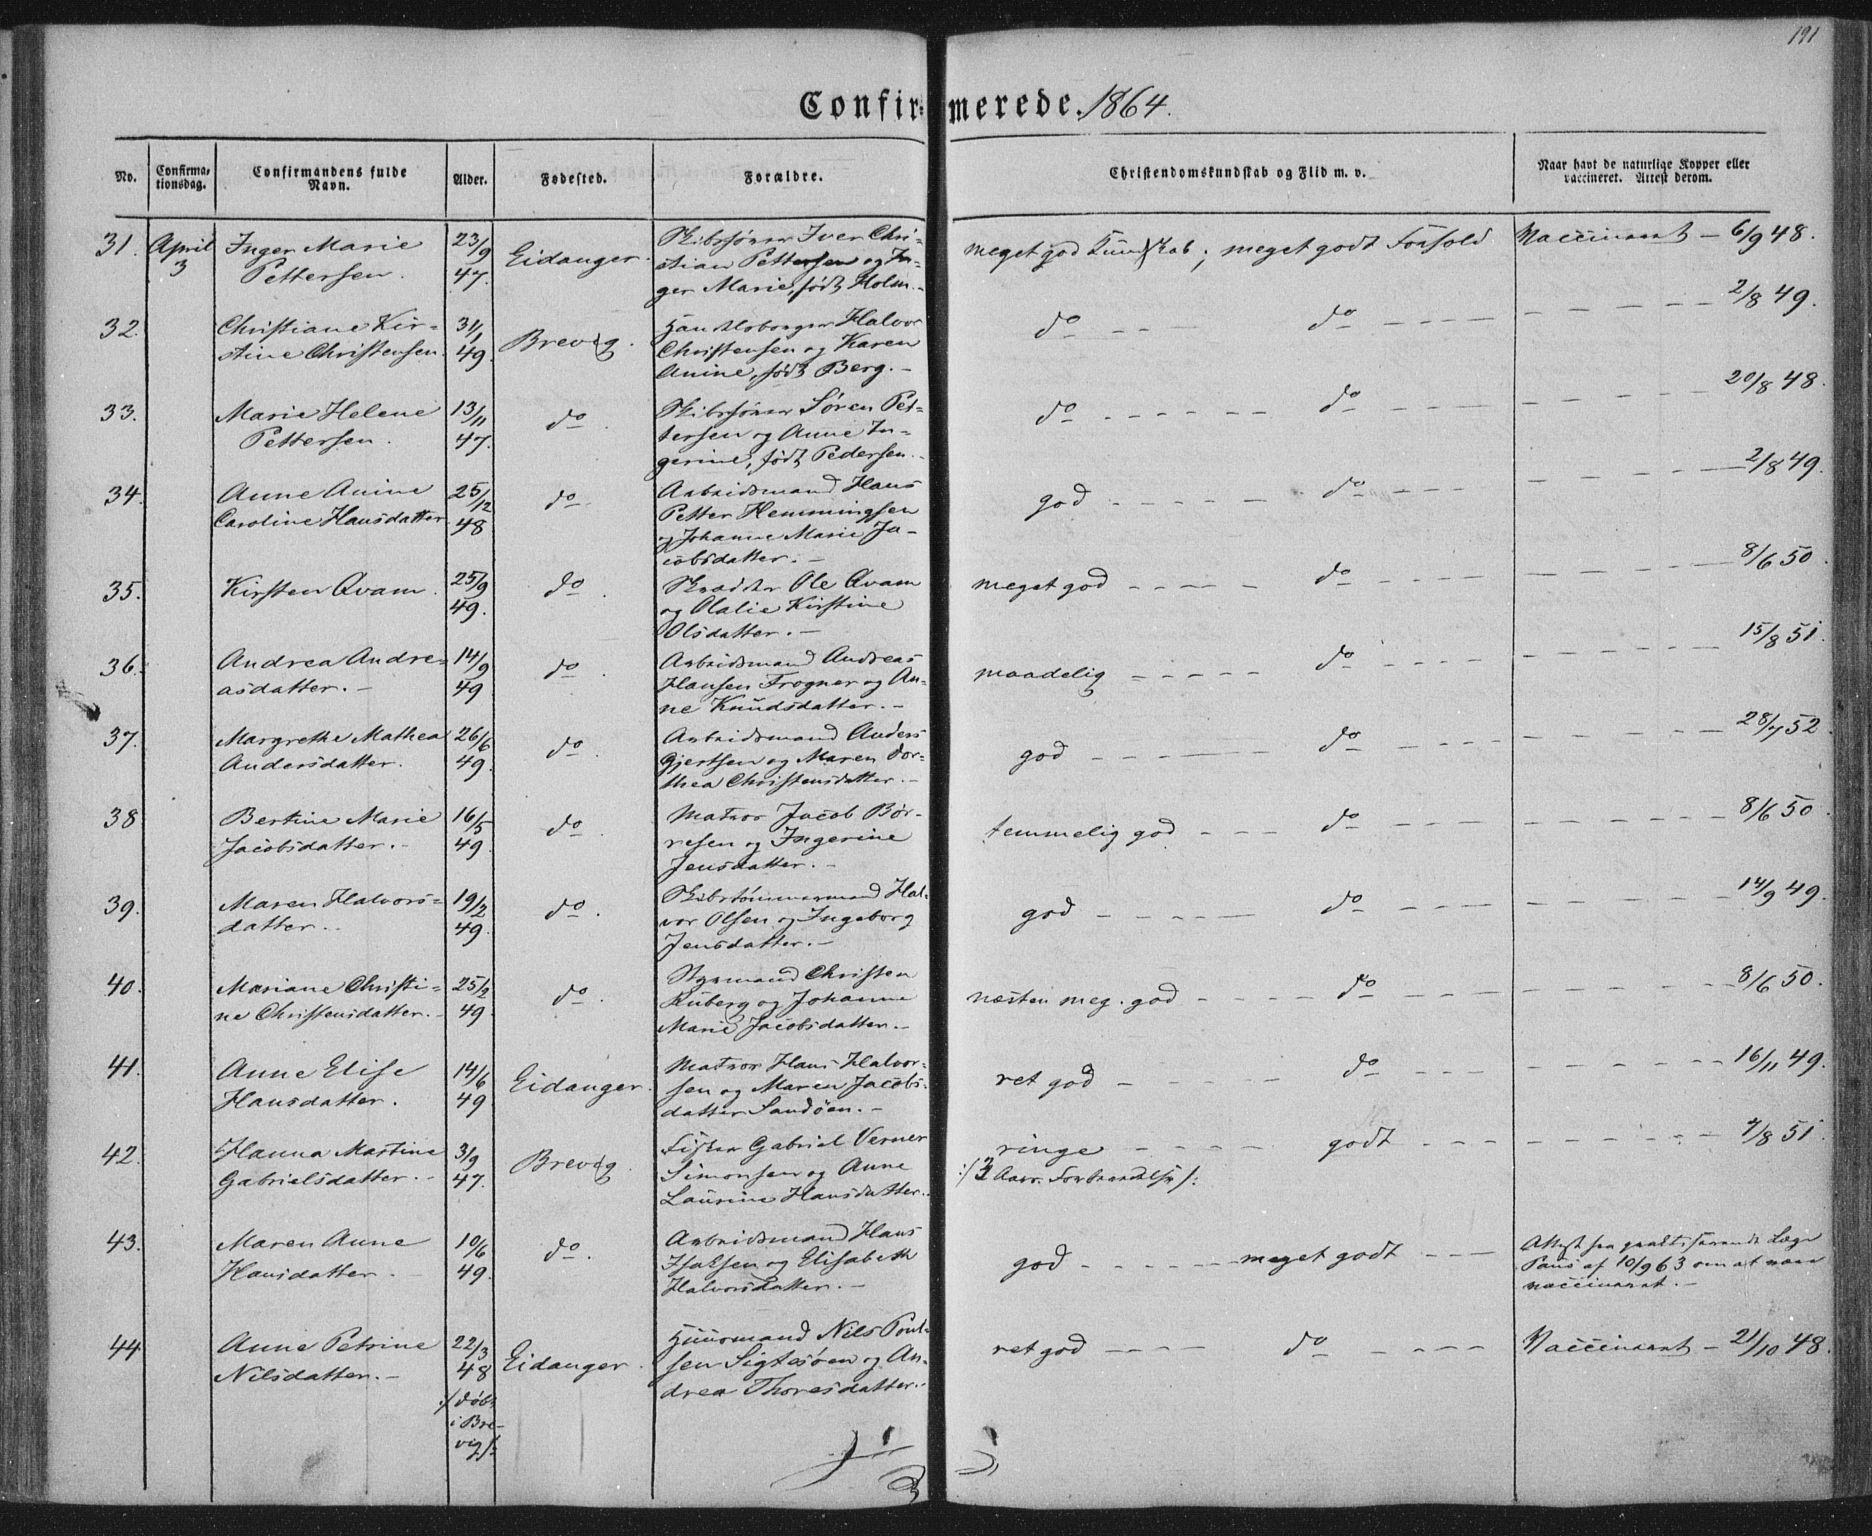 191
Confirmerede. 1864.
No. Confirmationsdag. Confirmandens fulde Navn. Alder. Fødested. Forældre. Christendomskundskab og Flid m. v. Naar havt de naturlige Kopper eller vaccineret. Attest derom.
31. April 3 Inger Marie Pettersen. 23/9 47. Eidanger. Skibsfører Iver Chri-
stian Pettersen og In-
ger Marie, født Holm. - meget god Kundskab; meget godt Forhold Vaccineret - 6/9 48.
32. Christiane Kir-
stine Christensen. 31/1 49. Brevig. Handelsborger Halvor
Christensen og Karen
Anine, født Berg. - do do 2/8 49.
33. Marie Helene
Pettersen. 13/11 47. do. Skibsfører Søren Pet-
tersen og Anne In-
gerine, født Pedersen. - do do 20/8 48.
34. Anne Anine
Caroline Hansdatter 25/12 48 do. Arbeidsmand Hans
Petter Hemmingsen
og Johanne Marie Ja-
cobsdatter. - god do 2/8 49.
35. Kirsten Qvam. 25/9 49. do. Skrædder Ole Qvam
og Olalie Kirstine
Olsdatter. - meget god do 8/6 50.
36. Andrea Andre-
asdatter. - 14/9 49 do. Arbeidsmand Andreas
Hansen Frogner og An-
ne Knudsdatter. - maadelig do 15/8 51.
37. Margrethe Mathea
Andersdatter. 26/6 49. do. Arbeidsmand Anders
Gjertsen og Maren Dor-
thea Christensdatter. - god do 28/7 52.
38 Bertine Marie
Jacobsdatter. - 16/5 49. do. Matros Jacob Bør-
resen og Ingerine
Jensdatter. - temmelig god. do 8/6 50.
39. Maren Halvors-
datter. 19/2 49. do. Skibstømmermand Hal-
vor Olsen og Ingeborg
Jensdatter. - god do 14/9 49.
40. Mariane Christi-
ne Christensdatter. - 25/2 49. do. Styrmand Christen
Ruberg og Johanne
Marie Jacobsdatter. - næsten meg. god do 8/6 50.
41. Anne Elise
Hansdatter. 14/6 49 Eidanger. Matros Hans Halvor-
sen og Maren Jacobs-
datter Sandøen. - ret god do 16/11 49.
42. Hanna Martine
Gabrielsdatter. - 3/9 47. Brevig. Fisker Gabriel Verner
Simonsen og Anne
Laurine Hansdatter. ringe godt 7/8 51.
43. Maren Anne
Hansdatter. 10/6 49. do. Arbeidsmand Hans
Isaksen og Elisabeth
Halvorsdatter. - god meget godt Attest fra praktiserende Læge
Paus af 10/9 63 om at være
vaccineret. -
44 Anne Petrine
Nilsdatter. - 22/3 48 :/døbt
i Bre-
vig/: Eidanger. Huusmand Nils Poul-
sen Sigtesøen og An-
drea Thoresdatter. ret god do Vaccineret - 21/10 48.